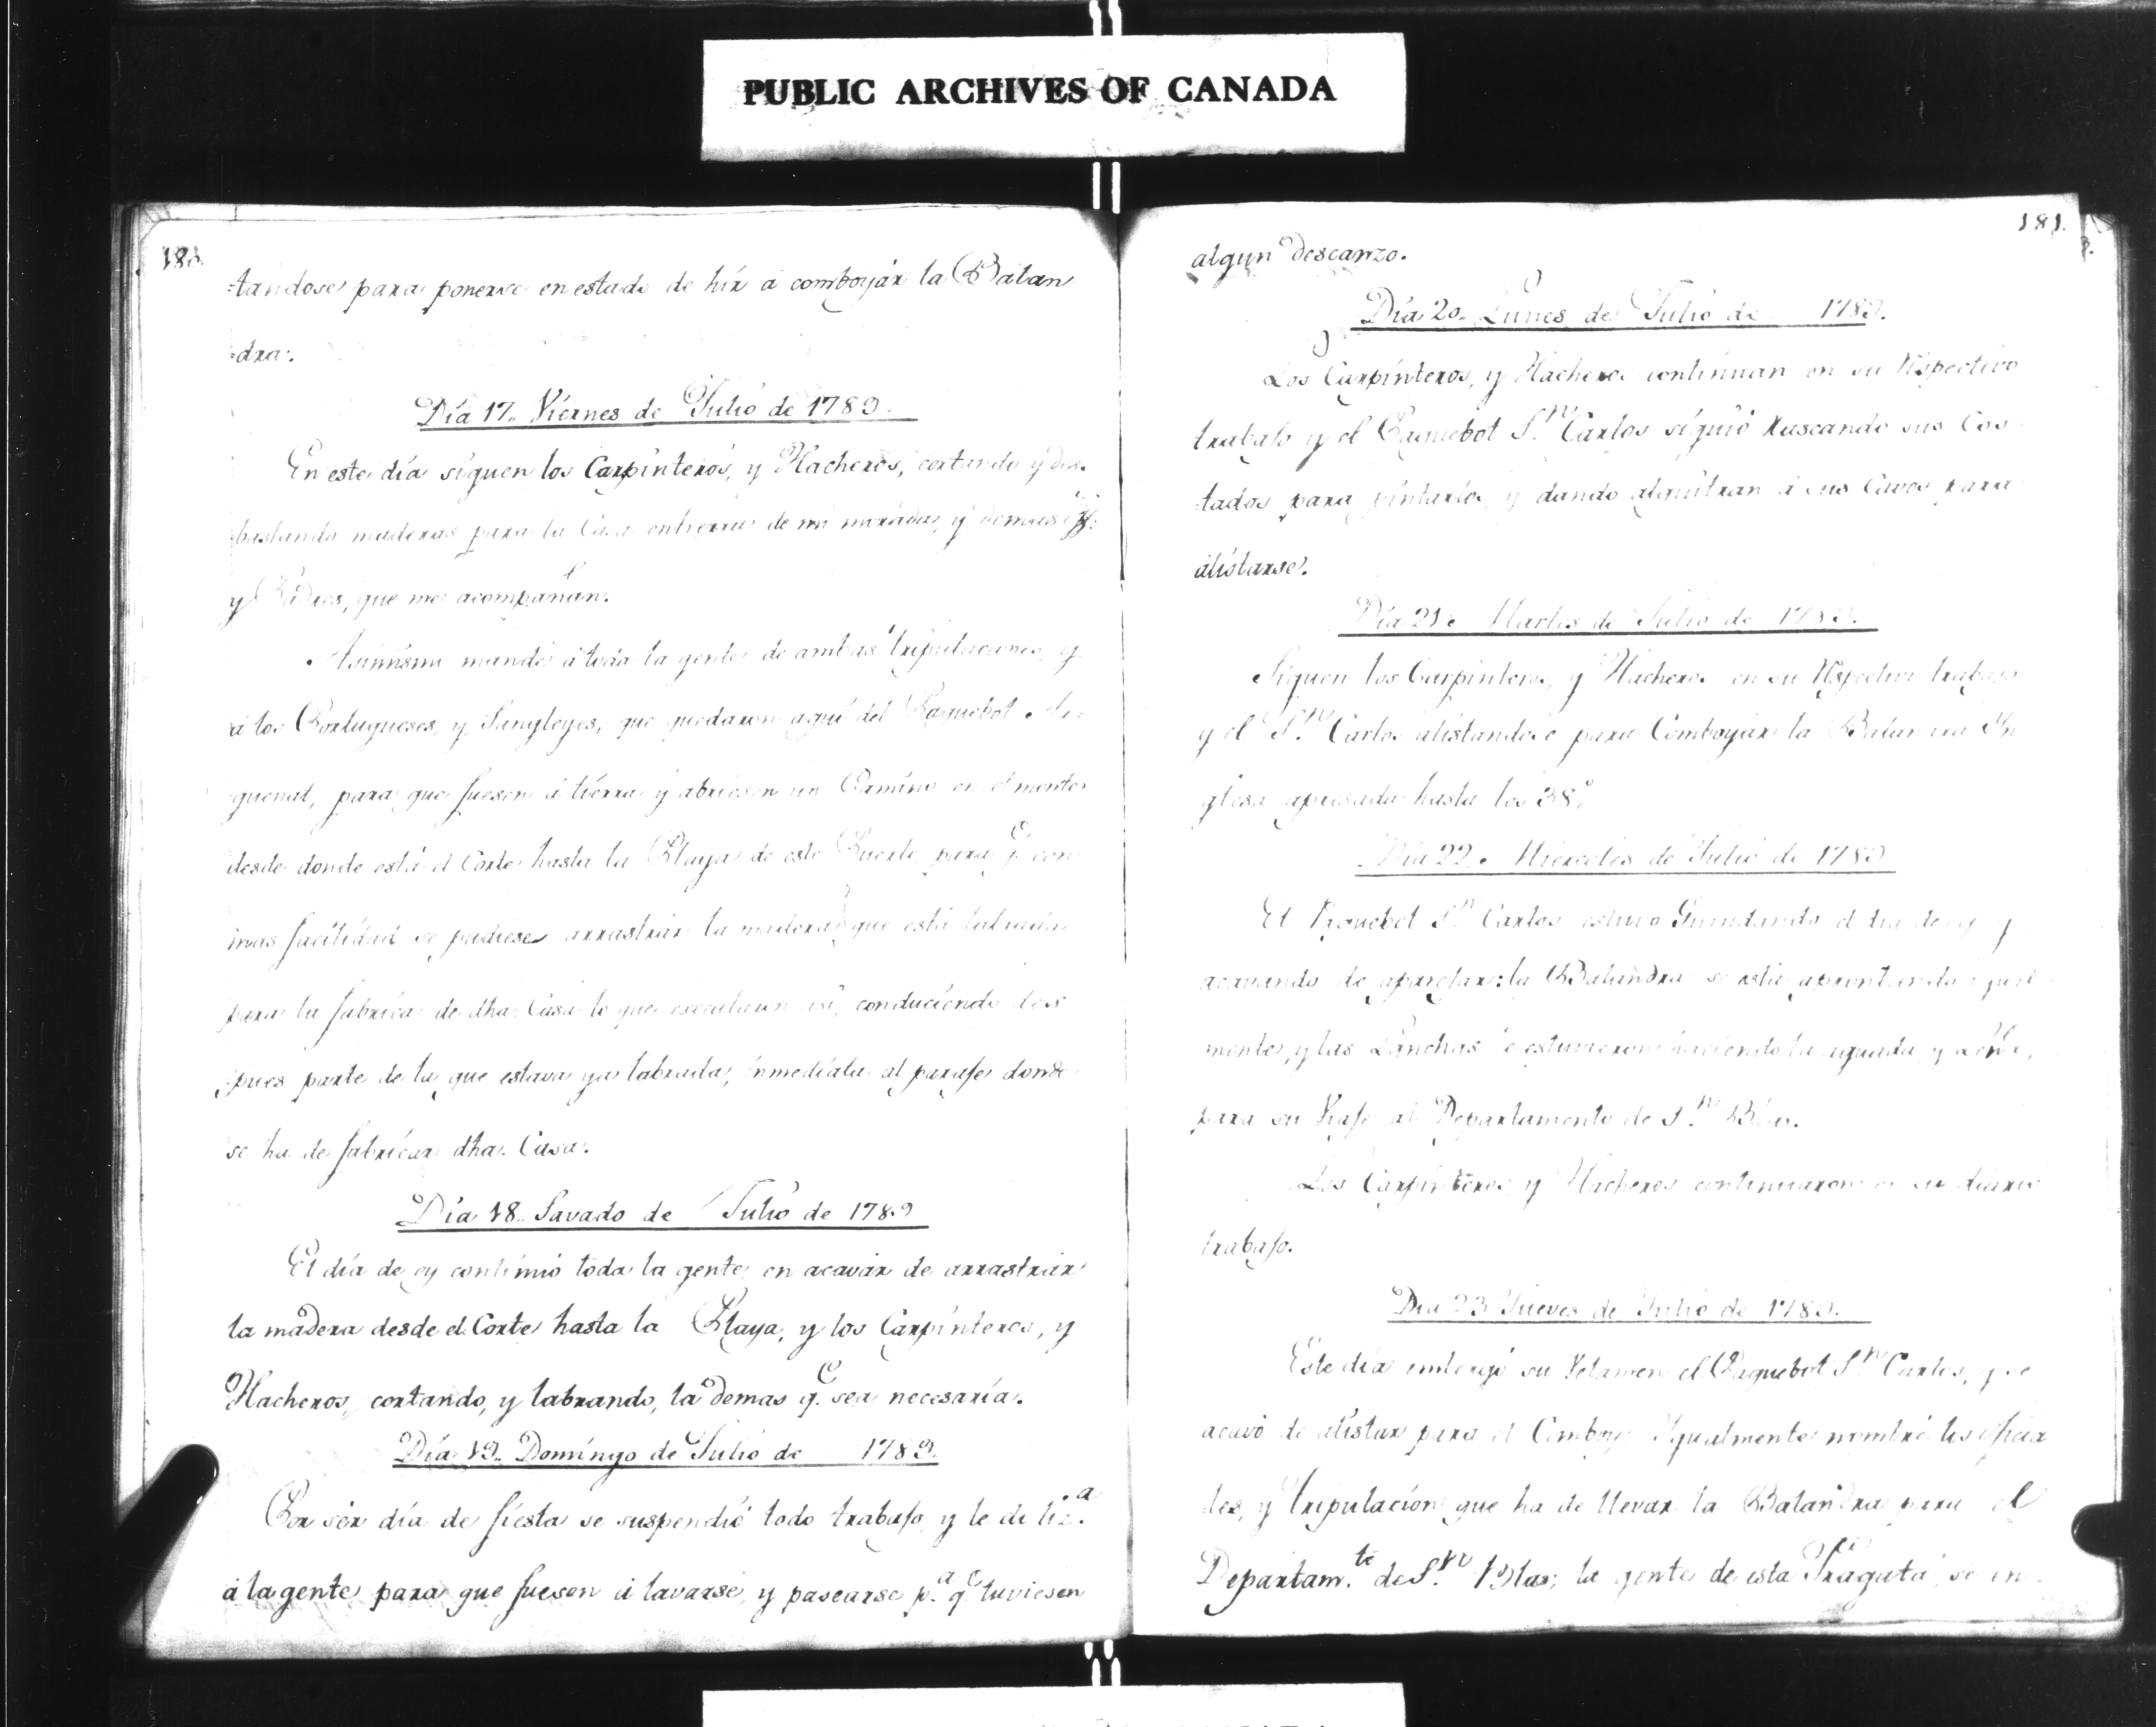 PUBLIC ARCHIVES OF CANADA
180.
-tandose para ponerse en estado de hír á comboyár la Balan
-dra.
Día 17.. Viernes de Julio de 1789.
En este día síguen los Carpínteros, y Hacheros, cortando y des-
bastando maderas para la Casa en tierra de mi morada, y demas
y Padres, que me acompañan.
Asimismo mandé á toda la gente de ambas tripulaciones, y
á los Portugueses, y Sangleyes, que quedaron aquí del Paquebot Ar=
guenat, para que fuesen á tierra y abriesen un Camino en el monte
desde donde está el Corte hasta la Playa de este Puerto para q.e con
mas facilidad se pudiese arrastrár la madera que está labrada
para la fabrica de dha. Casa lo que executaron así, conduciendo des
pues parte de la que estava ya labrada, inmediata al parafe donde
se ha de fabricar dha. Casa.
Día 18.. Savado de Julio de 1789
El día de oy continuó toda la gente en acavár de arrastrár
la madera desde el Corte hasta la Playa, y los Carpínteros, y
Hacheros, cortando, y labrando, la demas q.e sea necesaría.
Día 19.. Domíngo de Julio de 1789.
Por sér día de fiesta se suspendió todo trabafo, y le di liz.a
á la gente para que fuesen á lavarse, y pasearse p.a q.e tuviesen
181.
algun descanzo.
Día 20.. Lunes de Julio de 1789.
Los Carpínteros, y Hacheros contínuan en su Respectivo
trabafo y el Paquebot S.n Carlos síguió Rascando sus Cos
-tados para pintarlos, y dando alquitran á sus Cavos para
alístarse.
Día 21. Martes de Julio de 1789.
Síguen los Carpínteros, y Hacheros en su Respectivo trabafo
y el S.n Carlos alistandose para Comboyár la Balandra In
glesa apresada hasta los 38.°
Día 22. Miercoles de Julio de 1789
El Paquebot S.n Carlos estuvo Guindando el dia de oy y
acavando de aparefar: la Balandra se está aprontando igual
mente, y las Lanchas estuvieron haciendo la aguada y Leña,
para su Viafe al Departamento de S.n Blas.
Los Carpínteros y Hacheros continuaron en su diario
trabafo.
Día 23 Jueves de Julio de 1789.
Este día envergó su Velamen el Paquebot S.n Carlos, y se
acavó de alistar para el Comboy: Igualmente nombré los oficia
les, y tripulación que ha de llevar la Balandra para el
Departam.to de S.n Blas; la gente de esta Fragata se en